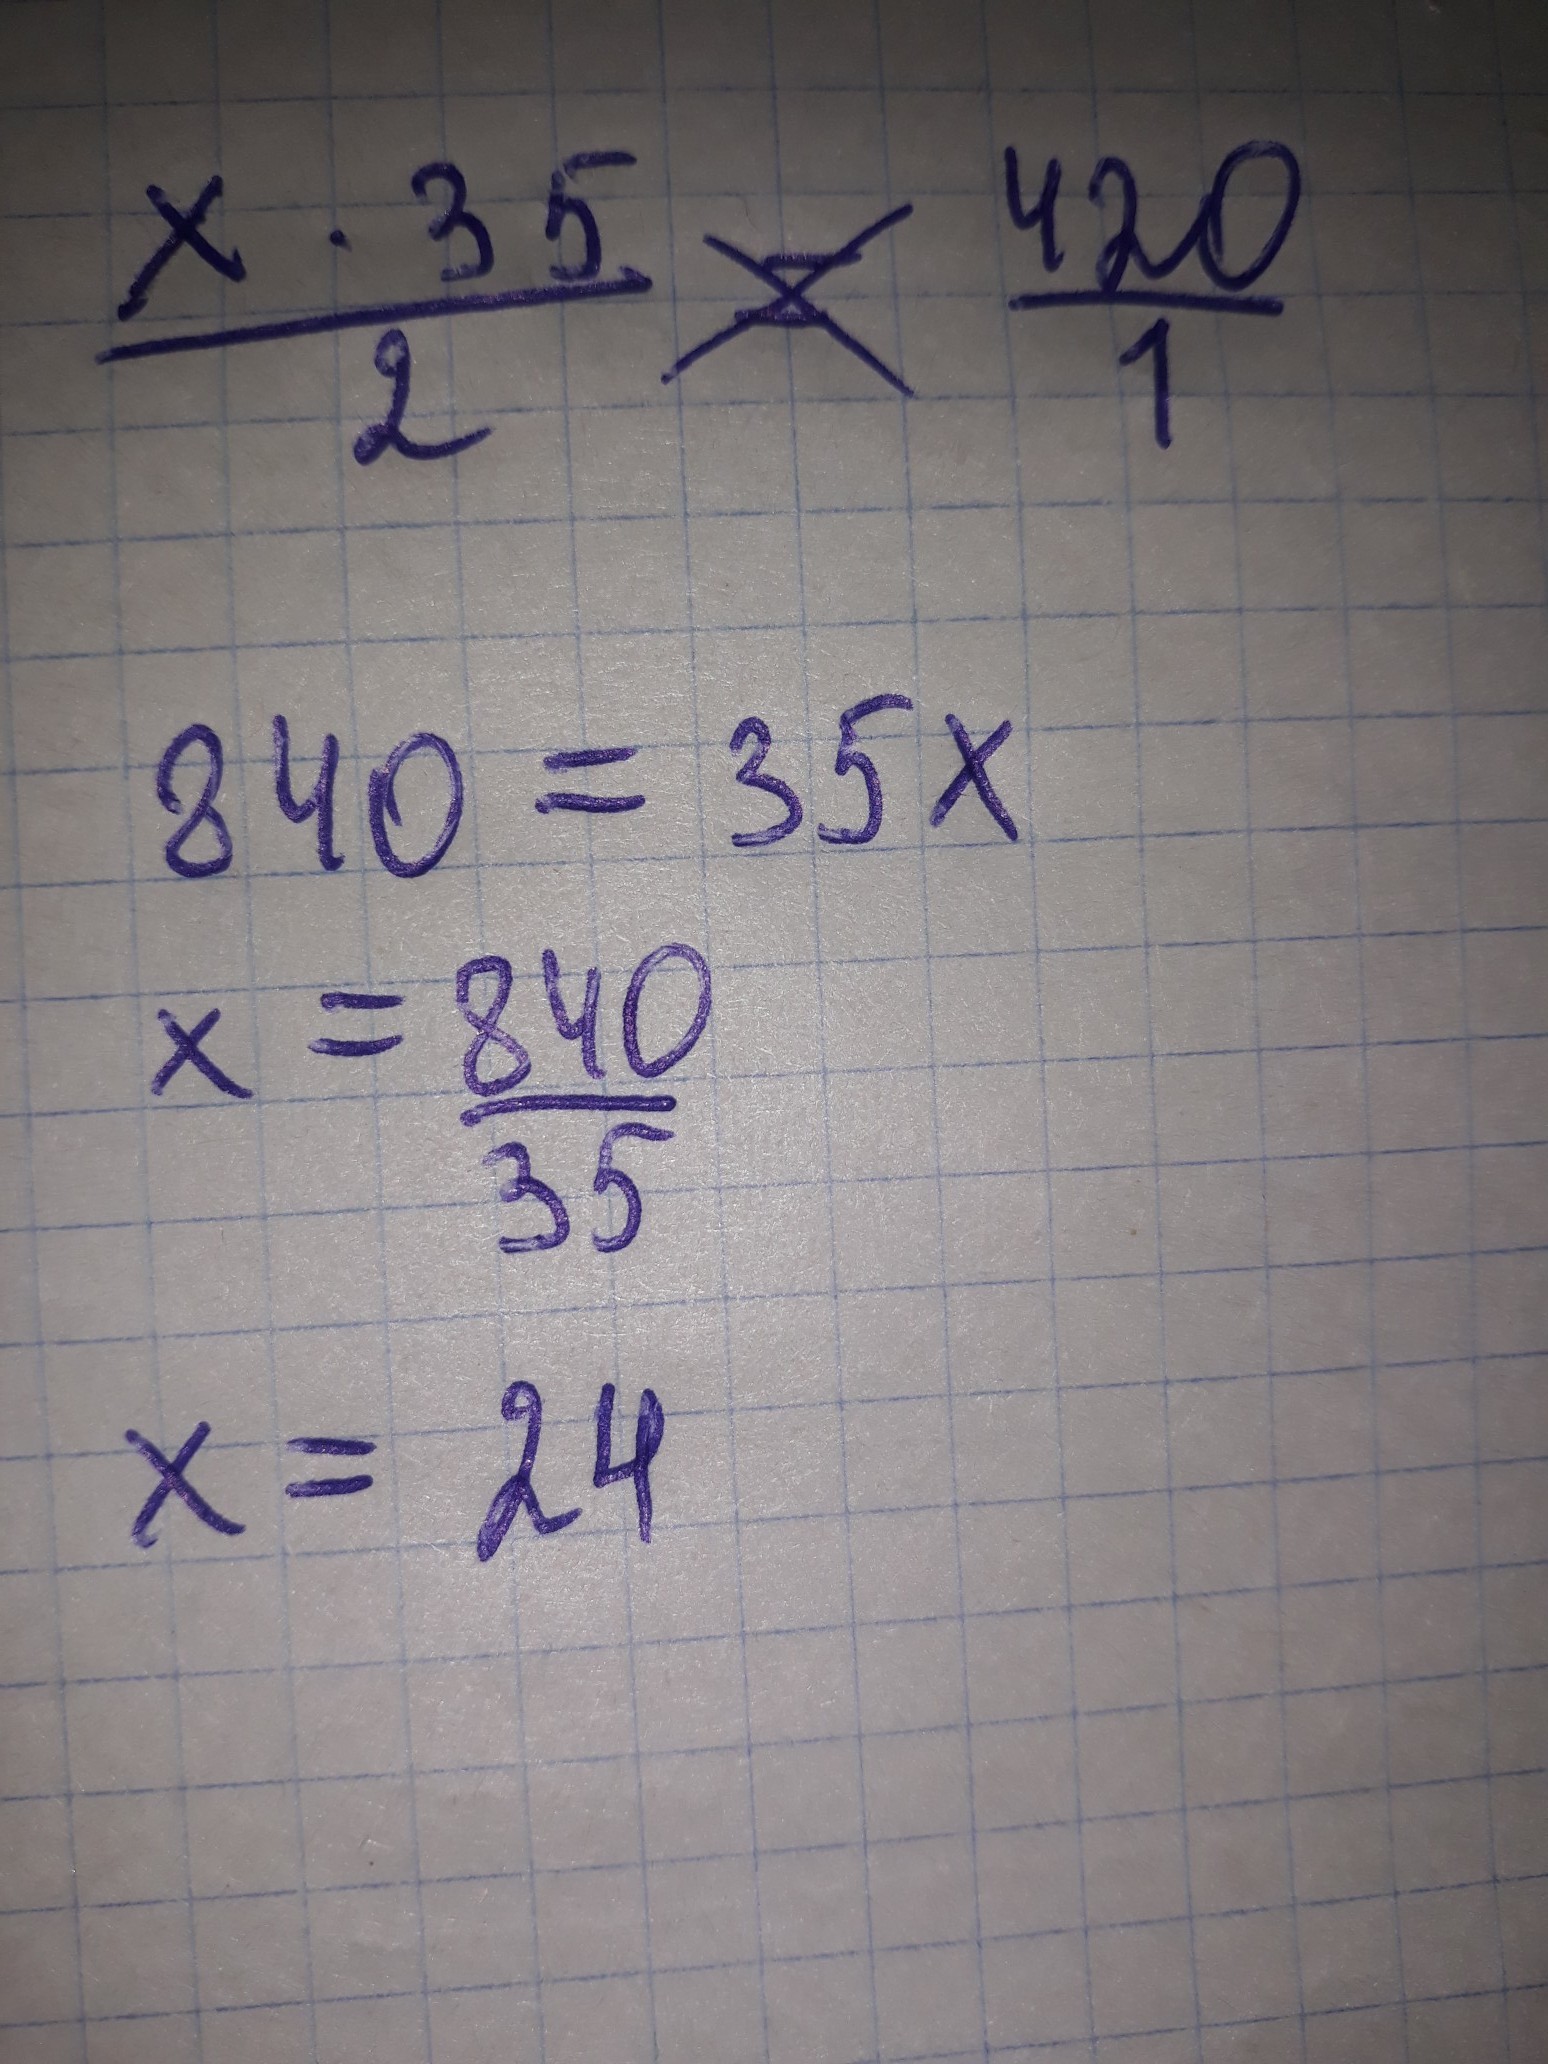 x · 35 = 420
2 1
840 = 35x
x = 840
35
x = 24